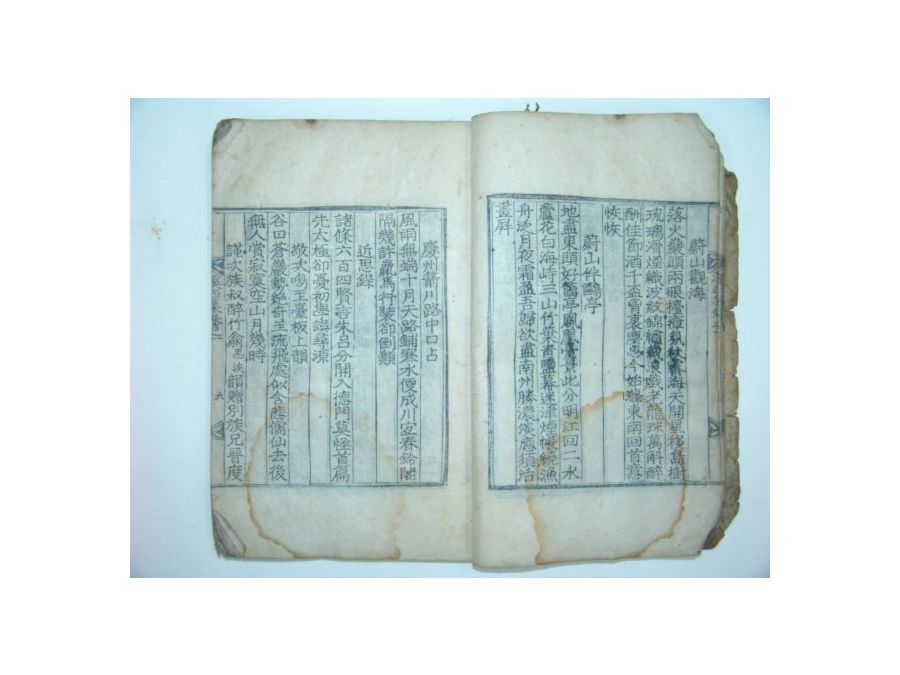 蔚山觀海
落火巖頭兩眼擡 海天開 移島樹
琉璃滑 織波紋錦 浪戲老龍珠萬斛醉
酬佳節酒千盃 裏塵 今始 東南回首意
恢恢
蔚山伴鷗亭
地盡東頭好 亭 此分明江回二水
蘆花白海峙三山竹葉靑 幕迷漂煙帳 漁
舟泛月夜霜 吾歸欲盡南州勝濃淡應須活
畫屛
慶州箭川路中口占
風雨無端十月天路鋪寒水便成川宜春鈴閣
隔幾許龍馬行裝卻倒顚
近思錄
諸條六百四賢言朱呂分開入德門莫怪首篇
先太極卻憂初學誤尋源
敬次鳴玉臺板上韻
谷口蒼巖勢絶奇玉流飛處似含悲儒仙去後
無人賞寂寞空山月幾時
謹次族叔醉竹翁 韻贈別族兄晉度
六